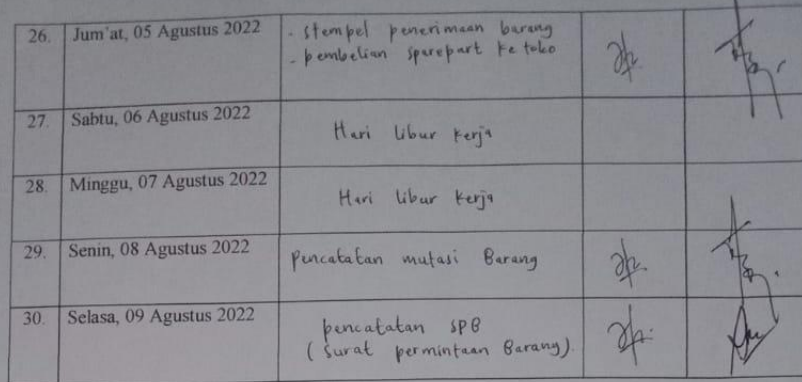 26. Jum'at, 05 Agustus 2022
- stempel penerimaan barang
- pembelian sparepart ke toko
27. Sabtu, 06 Agustus 2022
Hari libur kerja
28. Minggu, 07 Agustus 2022
Hari libur kerja
29. Senin, 08 Agustus 2022
pencatatan mutasi Barang
30. Selasa, 09 Agustus 2022
pencatatan SPB
(Surat permintaan Barang).